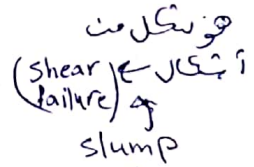 هو شكل من
أشكال ← (shear
failure)
slump